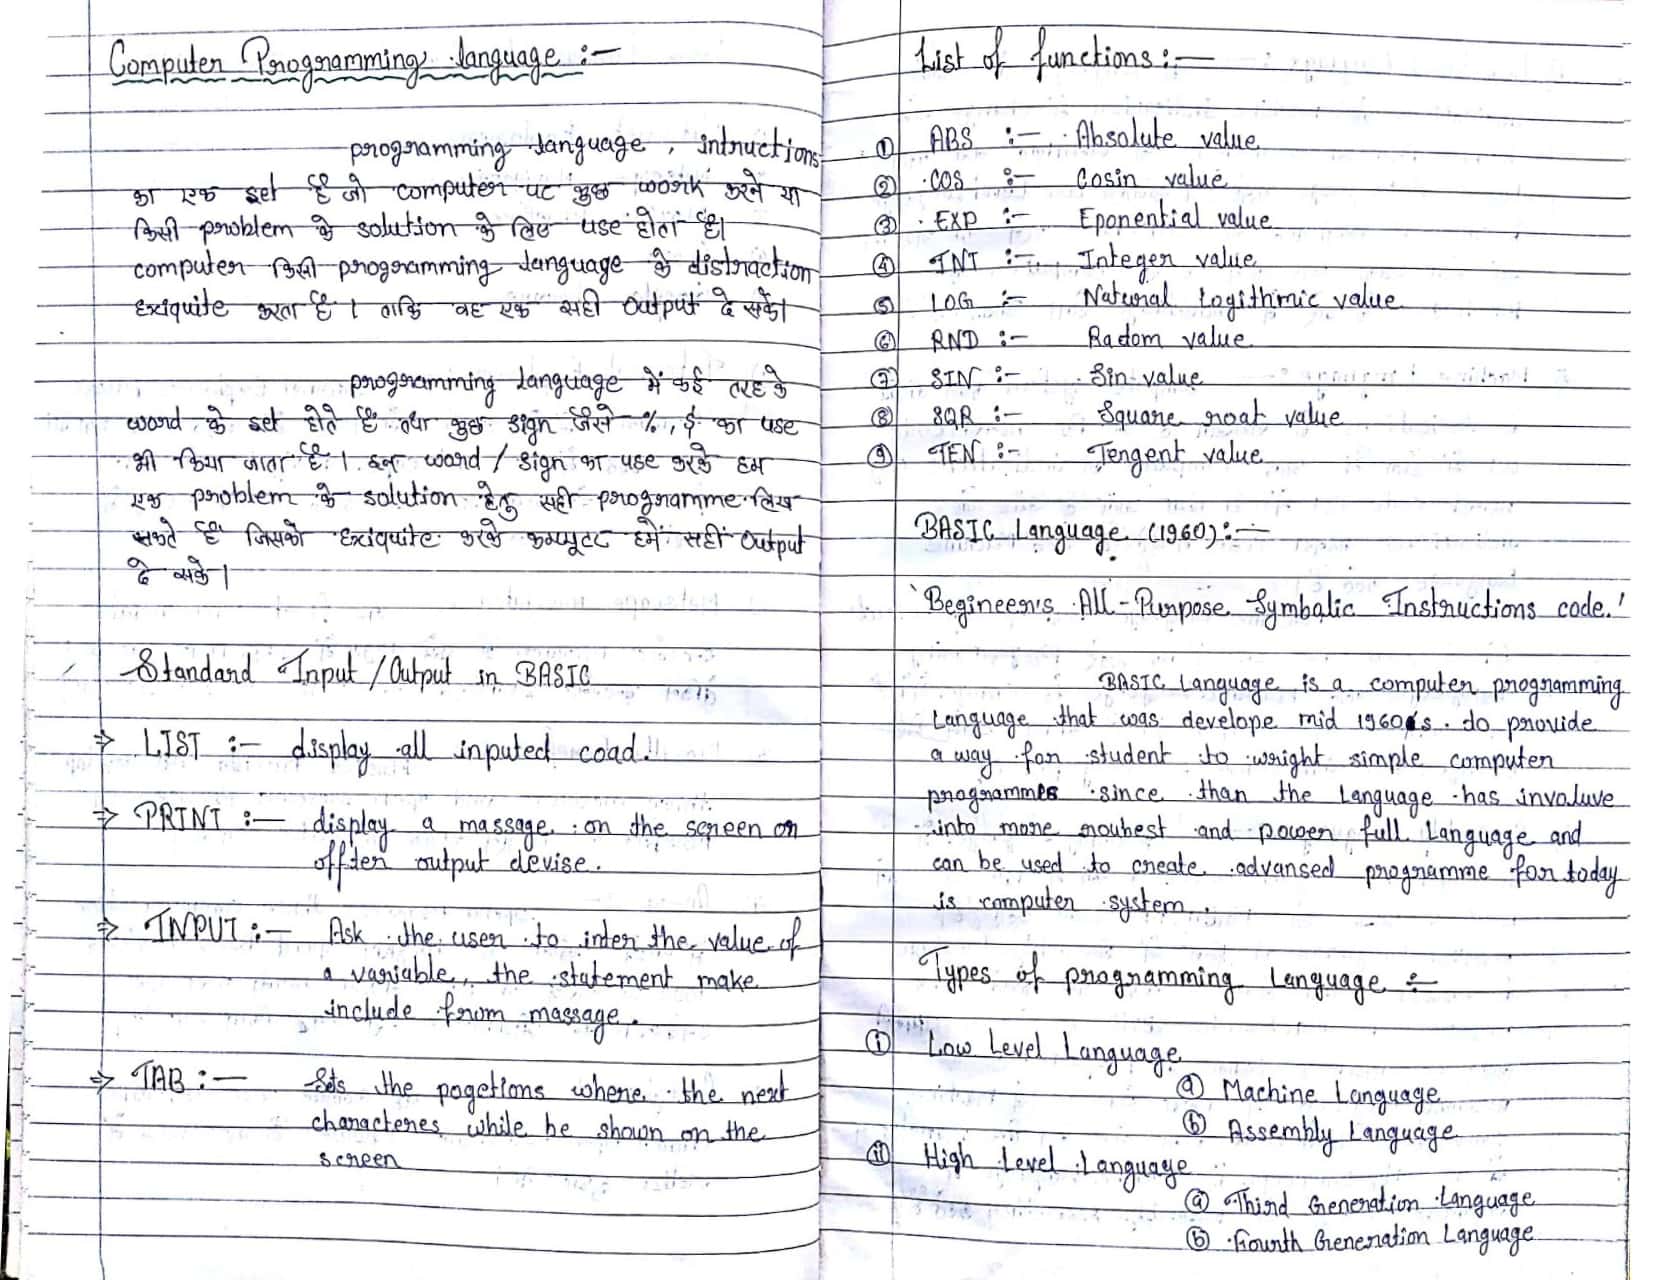 Computer Programming language :-
programming language, intructions
का एक set है जो computer पर कुछ work करने या
किसी problem के solution के लिए use होता है।
computer किसी programming language के distraction
Exiquite करता है। ताकि वह एक सही output दे सके।
programming language में कई तरह के
word के set होते है तथा कुछ sign जैसे %, ई का use
भी किया जाता है। इन word / sign का use करके हम
एक problem के solution हेतु सही programme लिख
सकते है जिसको Exiquite करके कम्प्यूटर हमें सही output
दे सके।
Standard Input / Output in BASIC
⇒ LIST :- display all inputed coad.
⇒ PRINT :- display a massage on the screen on
offter output devise.
⇒ INPUT :- Ask the user to inter the value of
a variable, the statement make
include from massage.
⇒ TAB :- Sets the pogetions where the next
characteres while be shown on the
screen
List of functions :-
① ABS :- Absolute value
② COS :- Cosin value
③ EXP :- Eponential value
④ INT :- Integer value
⑤ LOG :- Natural Logithmic value
⑥ RND :- Radom value
⑦ SIN :- Sin value
⑧ SQR :- Square roat value
⑨ TEN :- Tengent value
BASIC Language (1960) :-
'Begineer's All-Purpose Symbalic Instructions code.'
BASIC Language is a computer programming
Language that was develope mid 1960's. do provide
a way for student to wright simple computer
programmes since than the Language has involuve
into more roubest and power full Language and
can be used to create advansed programme for today
is computer system.
Types of programming Language :-
(i) Low Level Language
(a) Machine Language
(b) Assembly Language
(ii) High Level Language
(a) Third Generation Language
(b) Fourth Generation Language